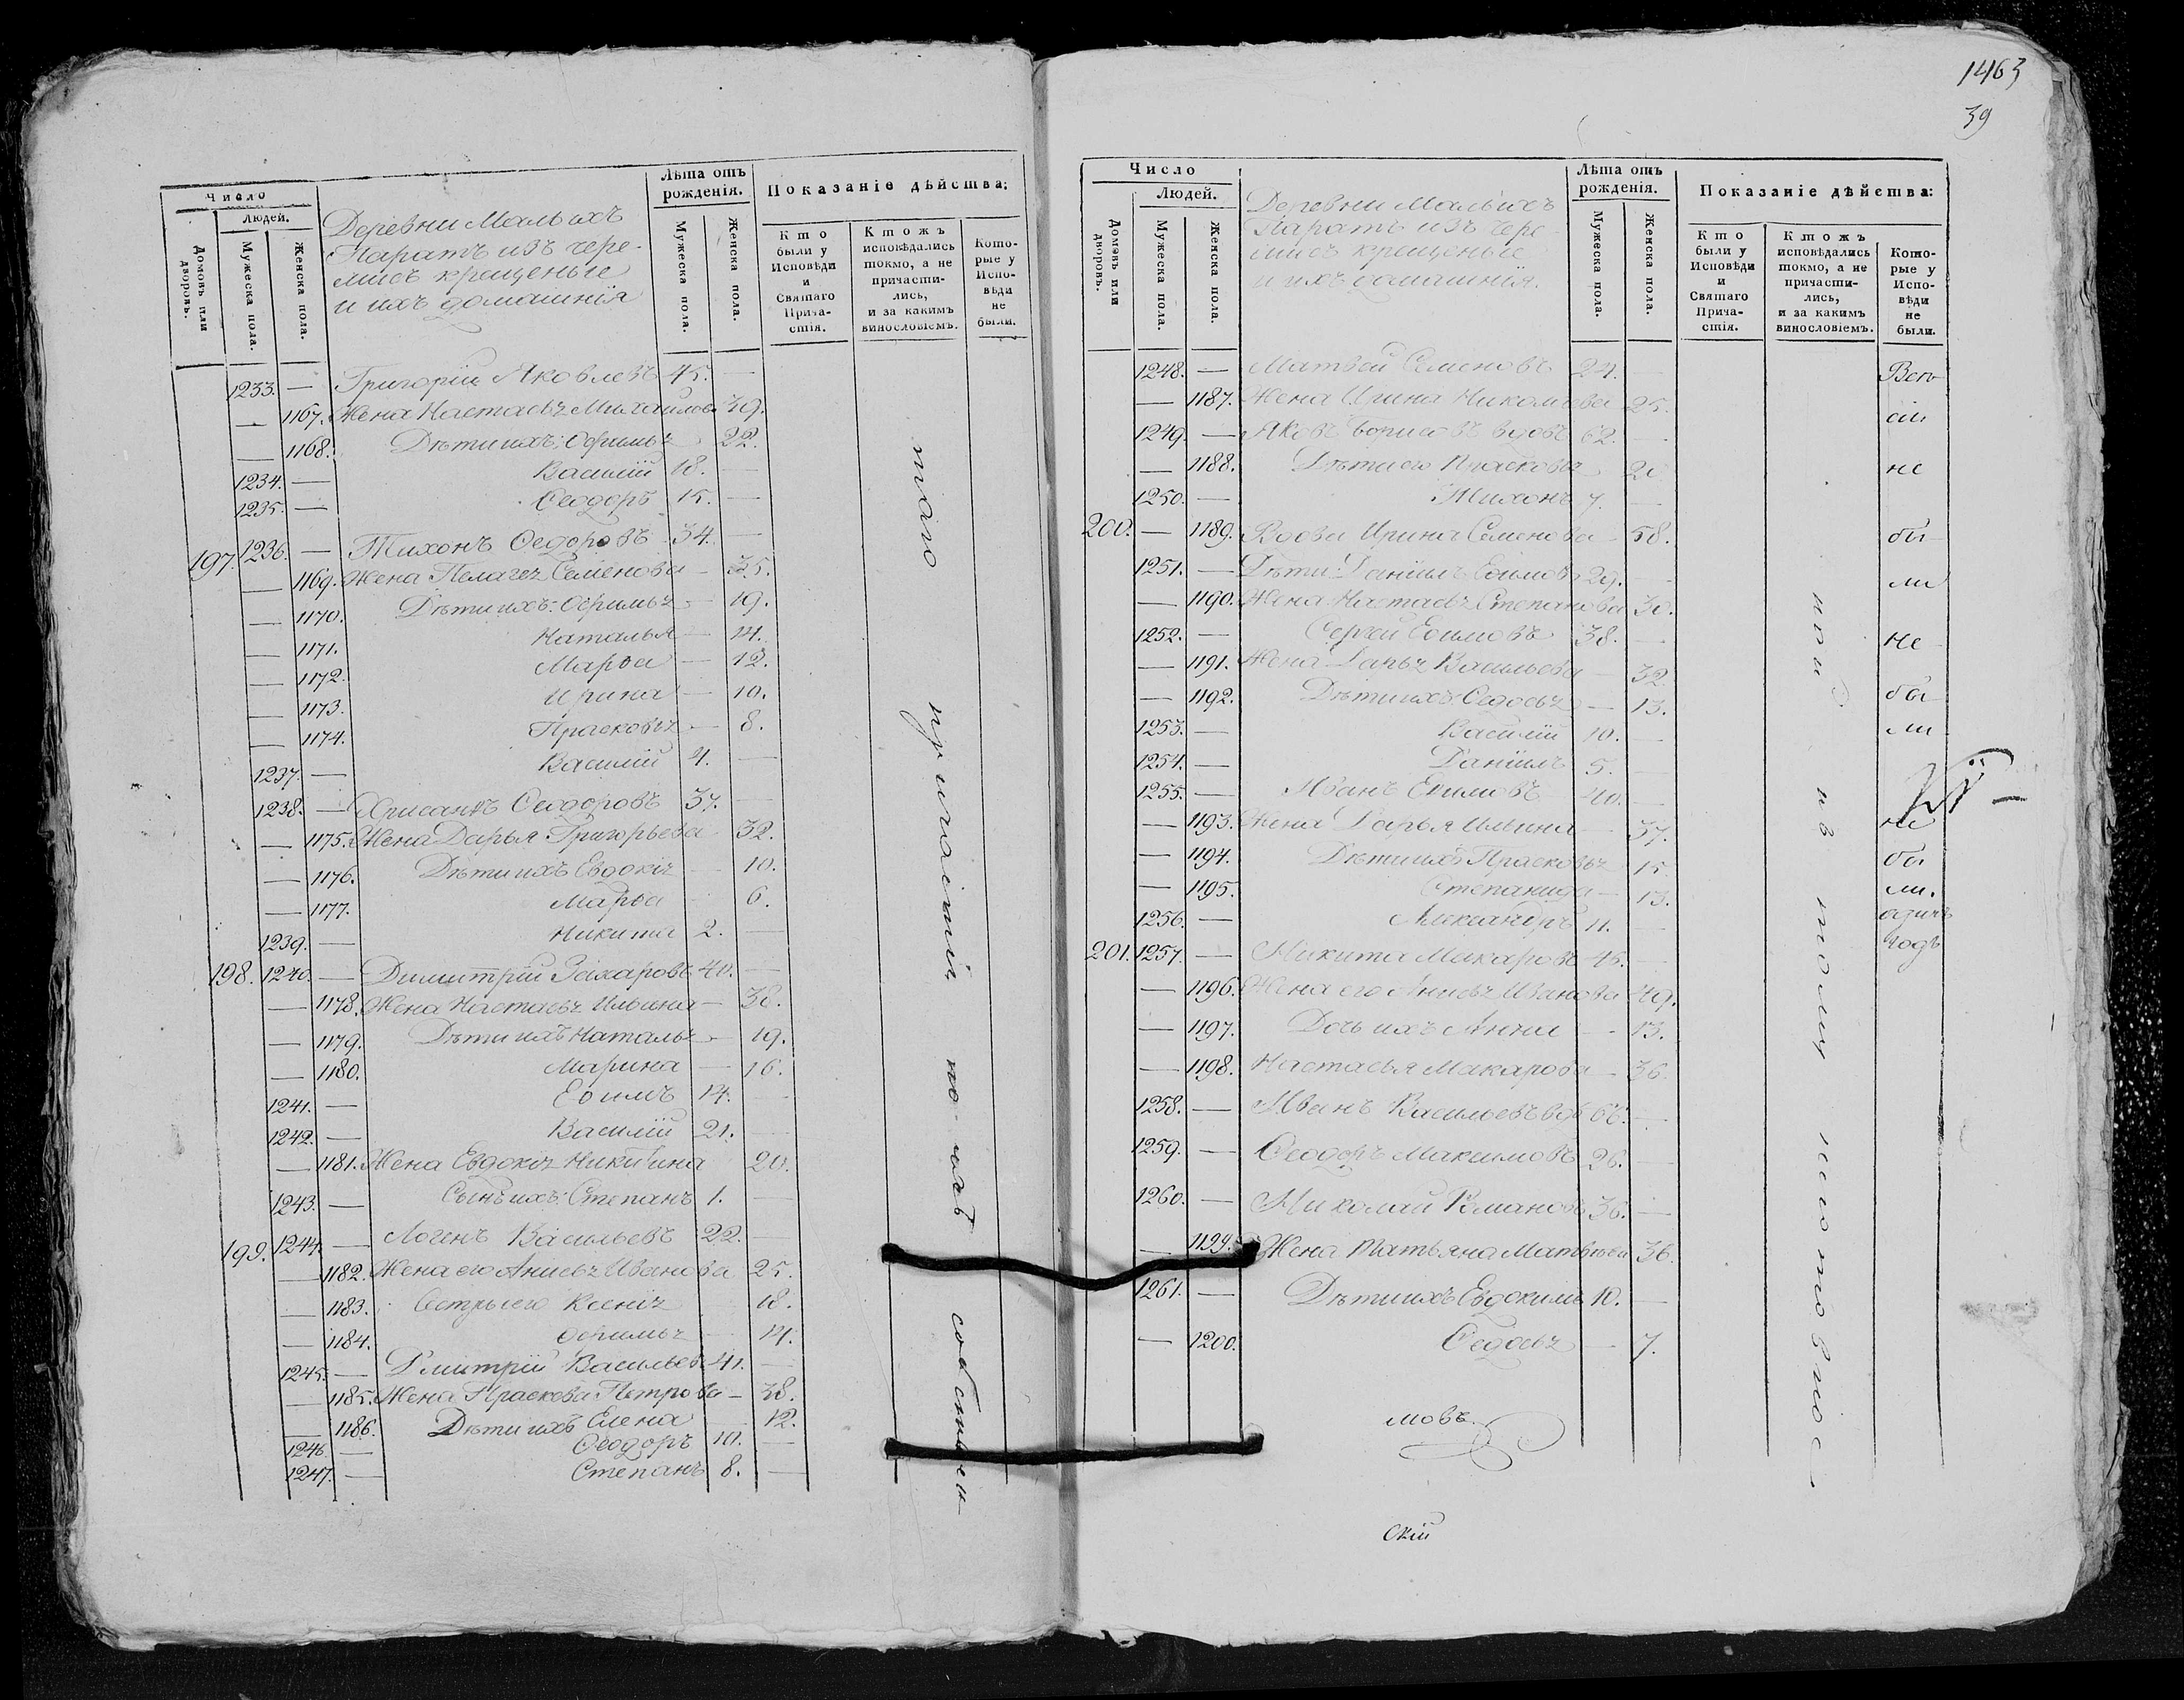 Число
Людей.
Домовъ или дворовъ.
Мужеска пола.
Женска пола.
Деревни Малыхъ
Паратъ изъ чере-
мисъ крещеные
и ихъ домашнія
Лѣта отъ рожденія.
Мужеска пола.
Женска пола.
Показаніе дѣйства:
Кто были у Исповѣди и Святаго Прича-стія.
Ктожъ исповѣдались токмо, а не причасти-лись, и за какимъ винословіемъ.
Кото-рые у Испо-вѣди не были.
1233. — Григорій Яковлевъ 45. —
— 1167. Жена Настасья Михайлова 39.
— 1168. Дѣти ихъ: Офимья 22.
1234. — Василій 18. —
1235. — Ѳеодоръ 15. —
197. 1236. — Тихонъ Ѳедоровъ 34. —
— 1169. Жена Пелагея Семенова — 35.
— 1170. Дѣти ихъ: Офимья — 19.
— 1171. Наталья — 14.
— 1172. Марѳа — 12.
— 1173. Ирина — 10.
— 1174. Прасковья — 8.
1237. — Василій 4. —
1238. — Хрисанѳъ Ѳеодоровъ 37. —
— 1175. Жена Дарья Григорьева 32.
— 1176. Дѣти ихъ Евдокія — 10.
— 1177. Марѳа 6.
1239. — Никита 2. —
198. 1240. — Димитрій Захаровъ 40. —
— 1178. Жена Настасья Ильина — 36.
— 1179. Дѣти ихъ Наталья — 19.
— 1180. Марина — 16.
1241. — Еѳимъ 14. —
1242. — Василій 21. —
— 1181. Жена Евдокія Никитина 20.
1243. — Сынъ ихъ: Степанъ 1. —
199. 1244. — Логенъ Васильевъ 22. —
— 1182. Жена его Анисья Иванова 25.
— 1183. Сестры его Ксенія 18.
— 1184. Офимья — 14.
1245. — Дмитрій Васильевъ 41. —
— 1185. Жена Прасковья Петрова — 38.
— 1186. Дѣти ихъ Елена — 12.
1246. — Ѳеодоръ 10. —
1247. — Степанъ 8. —
того причастій по собствен
1463
39
Число
Людей.
Домовъ или дворовъ.
Мужеска пола.
Женска пола.
Деревни Малыхъ
Паратъ изъ чере-
мисъ крещеные
и ихъ домашнія.
Лѣта отъ рожденія.
Мужеска пола.
Женска пола.
Показаніе дѣйства:
Кто были у Исповѣди и Святаго Прича-стія.
Ктожъ исповѣдались токмо, а не причасти-лись, и за какимъ винословіемъ.
Кото-рые у Испо-вѣди не были.
1248. — Матвей Семеновъ 24. —
— 1187. Жена Ирина Николаева 25.
1249. — Яковъ Борисовъ вдовъ 62. —
— 1188. Дѣти его Прасковья 20
1250. — Тихонъ 7. —
200. — 1189. Вдова Ирина Семенова — 58.
1251. — Дѣти: Даніилъ Еѳимовъ 29. —
— 1190. Жена Настасья Степанова 30.
1252. — Сергей Еѳимовъ 38. —
— 1191. Жена Дарья Васильева — 32
— 1192. Дѣти ихъ: Ѳедосья — 13.
1253. — Василій 10. —
1254. — Даніилъ 5. —
1255. — Иванъ Еѳимовъ 40. —
— 1193. Жена Дарья Ильина — 37.
— 1194. Дѣти ихъ Прасковья 15
— 1195. Степанида — 13.
1256. — Александръ 11. —
201. 1257. — Никита Макаровъ 45. —
— 1196. Жена его Анисья Иванова 49.
— 1197. Дочь ихъ Анна — 13.
— 1198. Настасья Макарова — 36.
1258. — Иванъ Васильевъ вдв 66. —
1259. — Ѳеодоръ Максимовъ 26. —
1260. — Николай Романовъ 36. —
— 1199. Жена Татьяна Матвѣева 36
1261. — Дѣти ихъ Евдокимъ 10. —
— 1200. Ѳедосья — 7.
Всѣ
сіи
не
бы
ли
не
бы
ли
не
бы
ли.
одинъ
годъ
мовъ.
скій